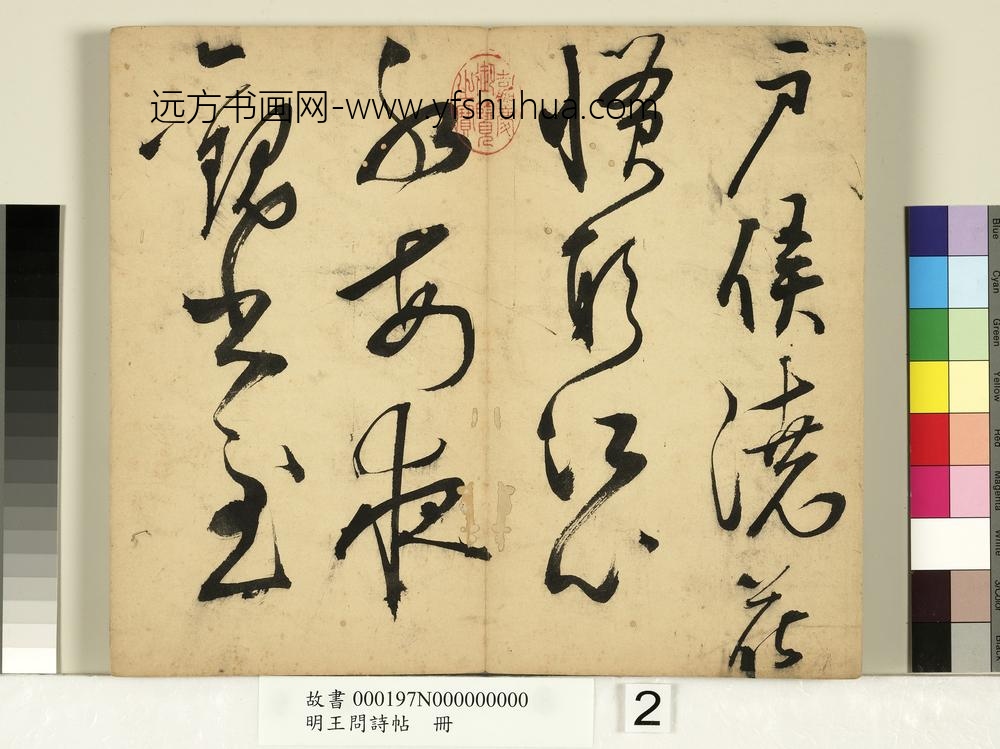 戶侯澆花
慣江心
水每夜
觀書至
嘉慶御覽之寶
远方书画网-www.yfshuhua.com
故書 000197N000000000
明王問詩帖 冊
2
Blue
Cyan
Green
Yellow
Red
Magenta
White
3/Color
Black